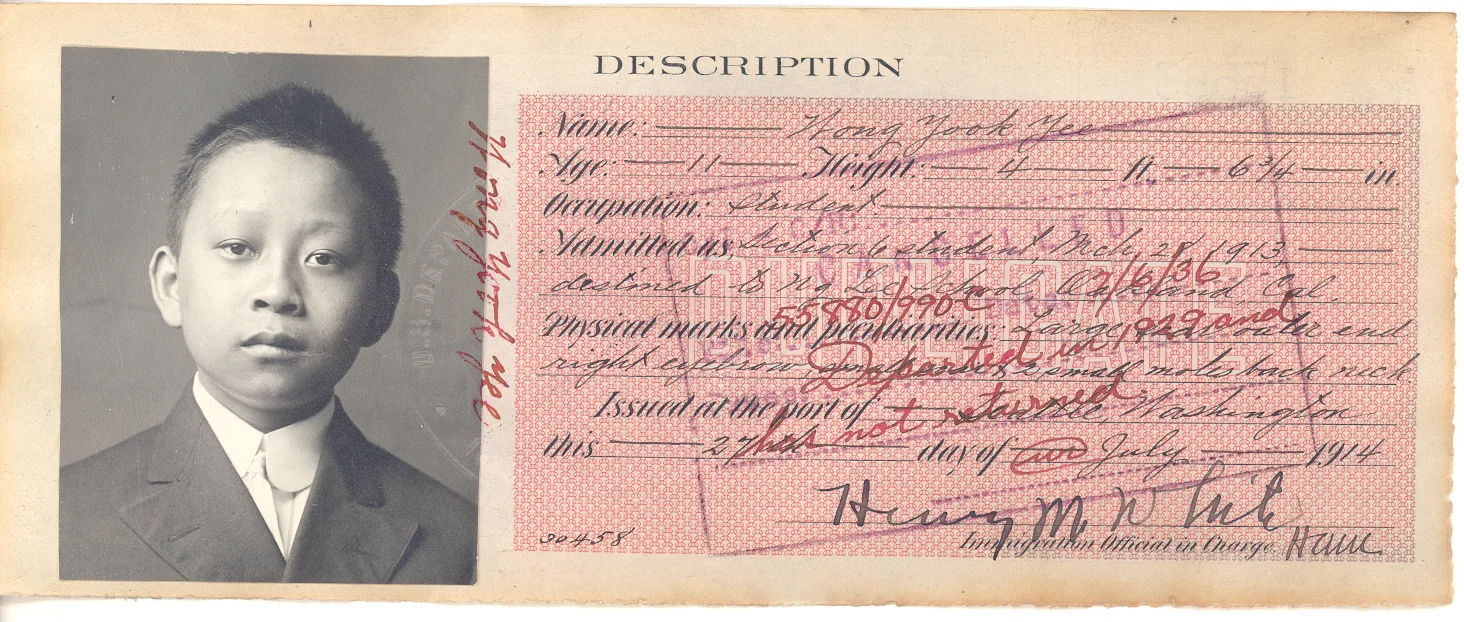 DESCRIPTION
Name: Wong Yook Yee
Age: 11 Height: 4 ft. 6 3/4 in.
Occupation: Student.
Admitted as Section 6 student, Mch, 28, 1913
CANCELED
destined to Ng Lee School, Oakland, Cal.
55880/990-C 2/6/36
DUPLICATE
Physical marks and peculiarities: Large outer end
right eyebrow 2 small moles back neck.
Departed in 1929 and
has not returned
Issued at the port of Seattle, Washington
this 27th day of July 1914
Henry M White
30458
Immigration Official in Charge.
Wong Yook Yee